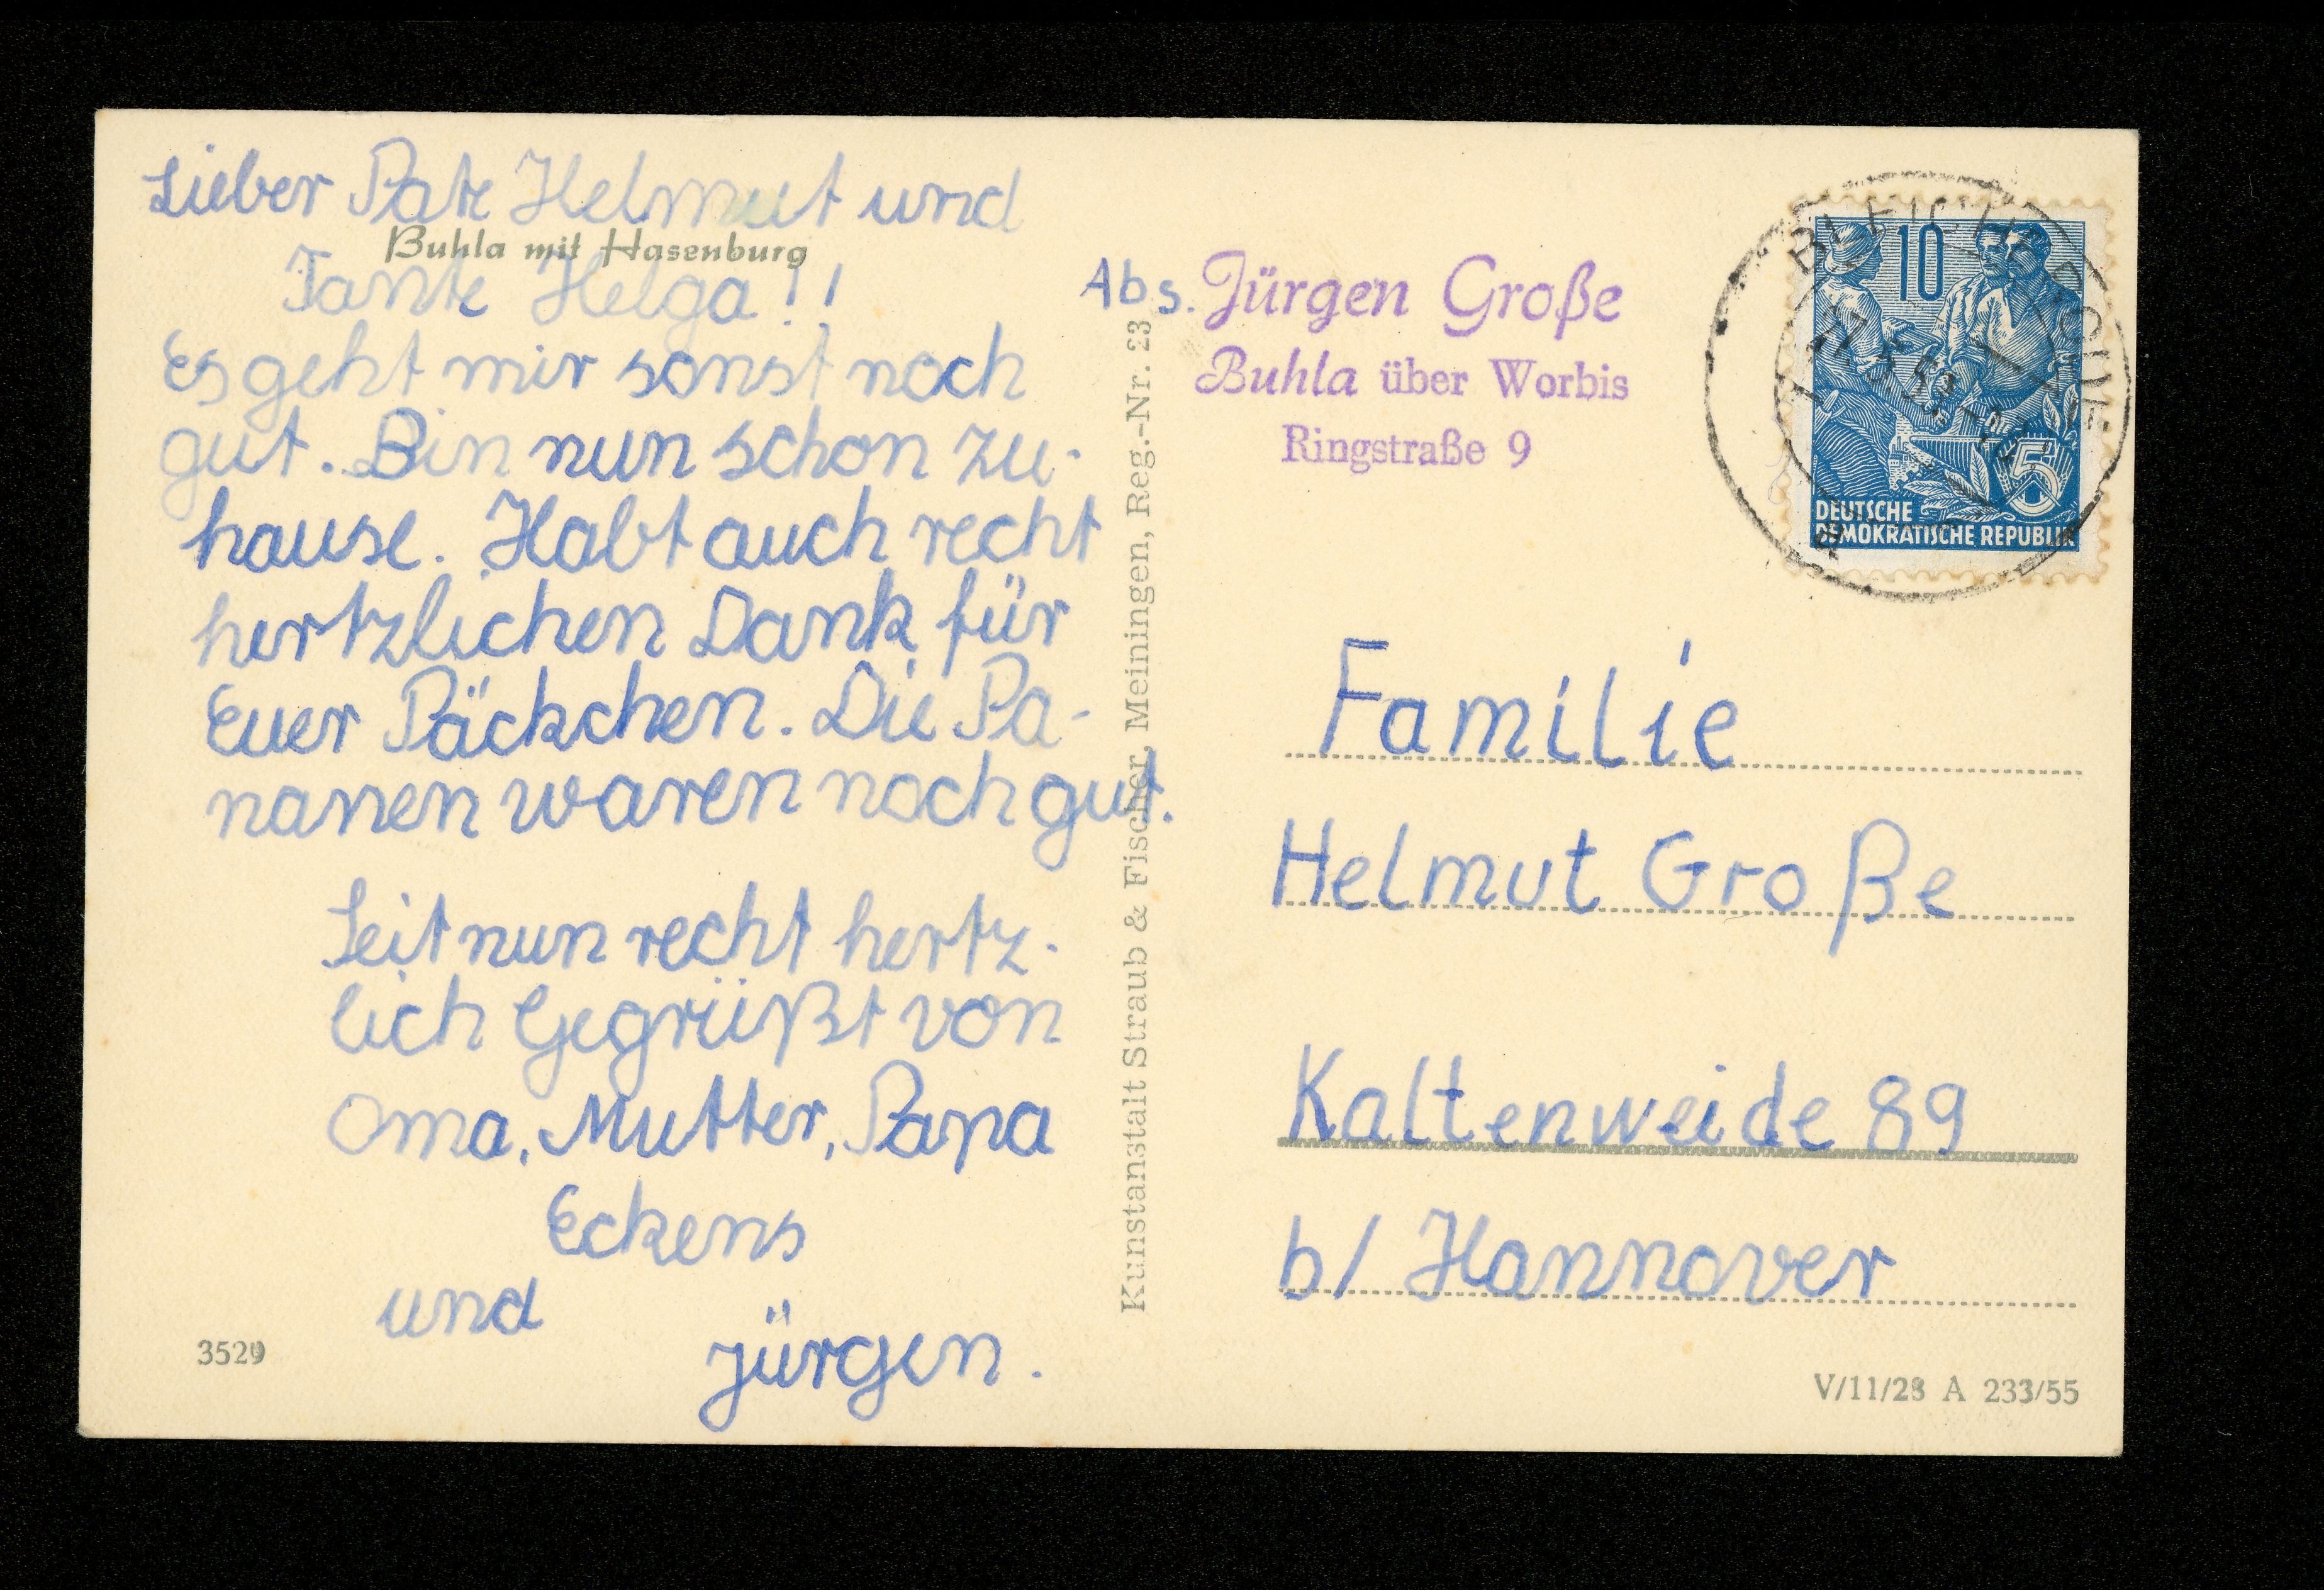 Lieber Pate Helmut und
Buhla mit Hasenburg
Tante Helga!!
Es geht mir sonst noch
gut. Bin nun schon zu-
hause. Habt auch recht
hertzlichen Dank für
Euer Päckchen. Die Pa-
nanen waren noch gut.
Seit nun recht hertz-
lich Gegrüßt von
Oma, Mutter, Papa
Eckens
und
Jürgen.
3529
Kunstanstalt Straub & Fischer, Meiningen, Reg.-Nr. 23
Abs. Jürgen Große
Buhla über Worbis
Ringstraße 9
10
5
DEUTSCHE
DEMOKRATISCHE REPUBLIK
BLEICHERODE
Familie
Helmut Große
Kaltenweide 89
b/ Hannover
V/11/28 A 233/55